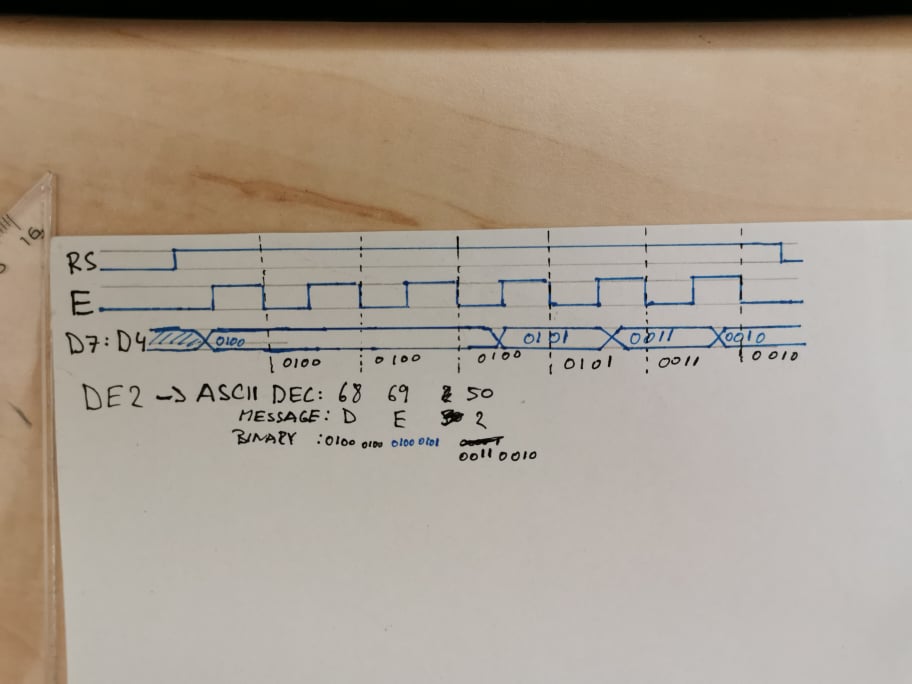 16
RS
E
D7:D4 0100 0101 0011 0010
0100 0100 0100 0101 0011 0010
DE2 → ASCII DEC: 68 69 50
MESSAGE: D E 2
BINARY : 0100 0100 0100 0101
0011 0010